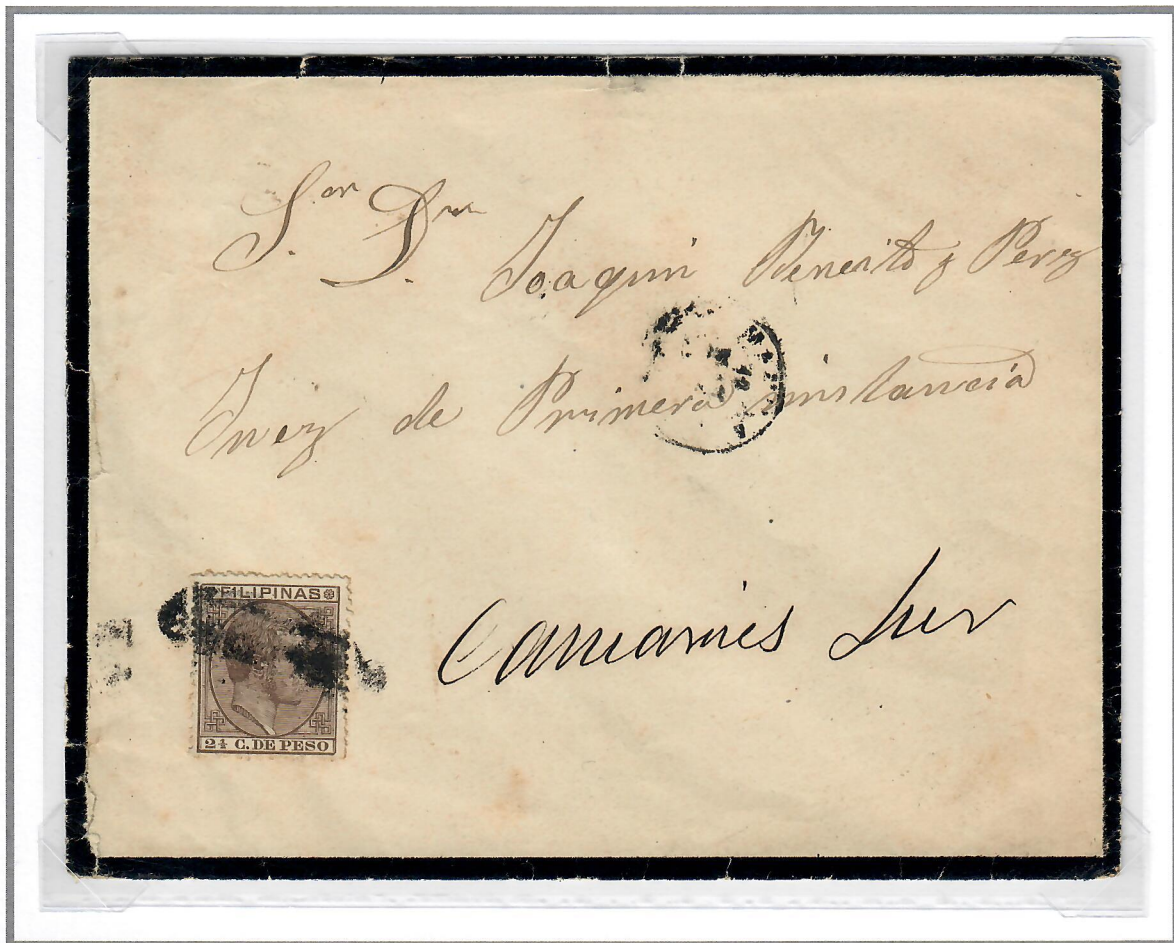 Sor. Dn. Joaquin Benerito y Perez
Juez de Primera instancia
Camarines Sur
FILIPINAS
24 C. DE PESO